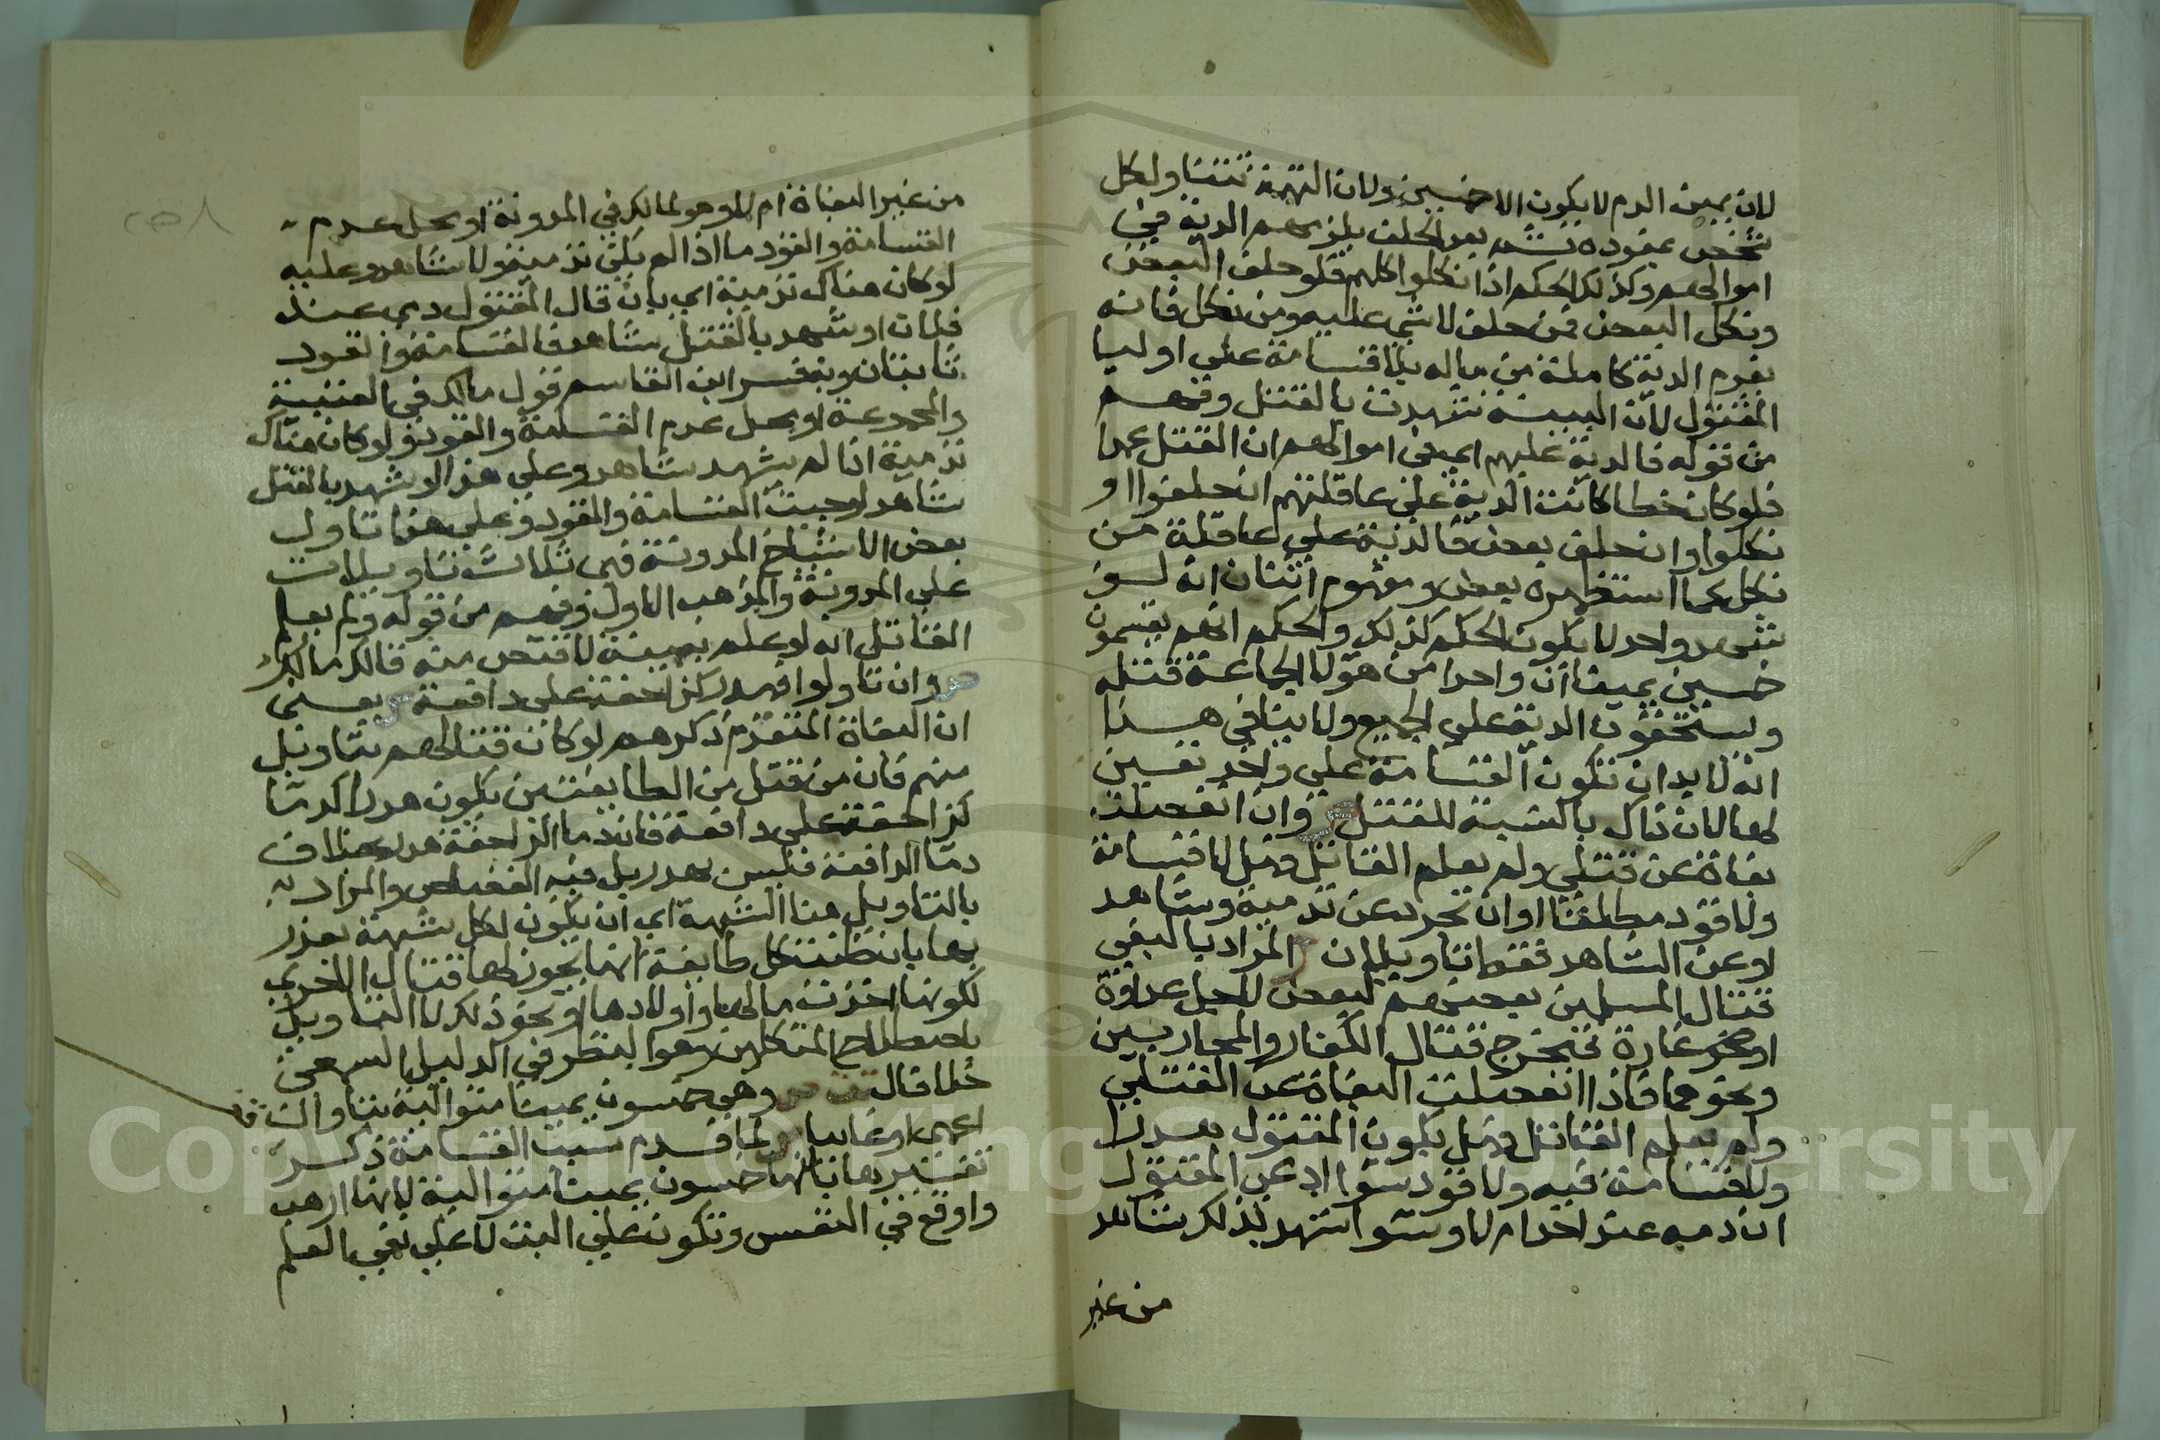 لان يمين الدم لا يكون الا خمسين ولان التهمة تتناول كل
شخص بمفرده ثم بعد الحلف يلزمهم الدية في
اموالهم وكذلك الحكم اذا نكلوا كلهم فلو حلف البعض
ونكل البعض فمن حلف لا شي عليه ومن نكل فانه
يغرم الدية كاملة من ماله بلا قسامة على اوليا
المقتول لان البينة شهدت بالقتل وفهم
من قوله فالدية عليهم اي في اموالهم ان القتل عمدا
فلو كان خطا كانت الدية على عاقلتهم ان حلفوا او
نكلوا وان حلف بعض فالدية على عاقلة من
نكل كما استظهره بعض ومفهوم اثنان انه لو
شهد واحد لا يكون الحكم كذلك والحكم انهم يقسمون
خمسين يمينا ان واحدا من هولا الجماعة قتله
ويستحقون الدية على الجميع ولا ينافي هذا
انه لا بد ان تكون القسامة على واحد يعين
لها لان ذاك بالنسبة للقتل ص وان انفصلت
بغاة عن قتلى ولم يعلم القاتل فهل لا قسامة
ولا قود مطلقا او ان تجرد عن تدمية وشاهد
او عن الشاهد فقط تاويلان ش المراد بالبغي
قتال المسلمين بعضهم لبعض لاجل عداوة
او نحو غارة فيخرج قتال الكفار والمحاربين
ونحوهما فاذا انفصلت البغاة عن القتلى
ولم يعلم القاتل فهل يكون المقتول هدرا
ولا قسامة فيه ولا قود سوا ادعى المقتول
ان دمه عند احد ام لا وسوا شهد لذلك شاهد
من غير
من غير البغاة ام لا وهو لمالك في المدونة او محل عدم
القسامة والقود ما اذا لم يكن تدمية ولا شاهد وعليه
لو كان هناك تدمية اي بان قال المقتول دمي عند
فلان او شهد بالقتل شاهد فالقسامة والقود
ثابتان وبه فسر ابن القاسم قول مالك في العتبية
والمجموعة او محل عدم القسامة والقود ولو كان هناك
تدمية اذا لم يشهد شاهد وعلى هذا لو شهد بالقتل
شاهد لوجبت القسامة والقود وعلى هذا تاول
بعض الاشياخ المدونة فهي ثلاث تاويلات
على المدونة والمذهب الاول وفهم من قوله ولم يعلم
القاتل انه لو علم ببينة لاقتص منه قاله مالك
ص وان تاولوا فهدر كزاحفة على دافعة ش يعني
ان البغاة المتقدم ذكرهم لو كان قتالهم بتاويل
منهم فان من قتل من الطايفتين يكون هدرا كدما
كزاحفة على دافعة فان دما الزاحفة هدر بخلاف
دما الدافعة فليس بهدر بل فيه القصاص والمراد
بالتاويل هنا الشبهة اي ان يكون لكل شبهة يعذر
بها بان ظنت كل طايفة انها يجوز لها قتال الاخرى
لكونها اخذت مالها او اولادها او نحو ذلك لا التاويل
باصطلاح المتكلمين وهو النظر في الدليل السمعي
خلافا لتت ص وهي خمسون يمينا متوالية بتا وان
اعمى او غايبا ش لما قدم سبب القسامة ذكر
تفسيرها بانها خمسون يمينا متوالية لانها ارهب
واوقع في النفس وتكون على البت لا على نفي العلم
Copyright © King Saud University